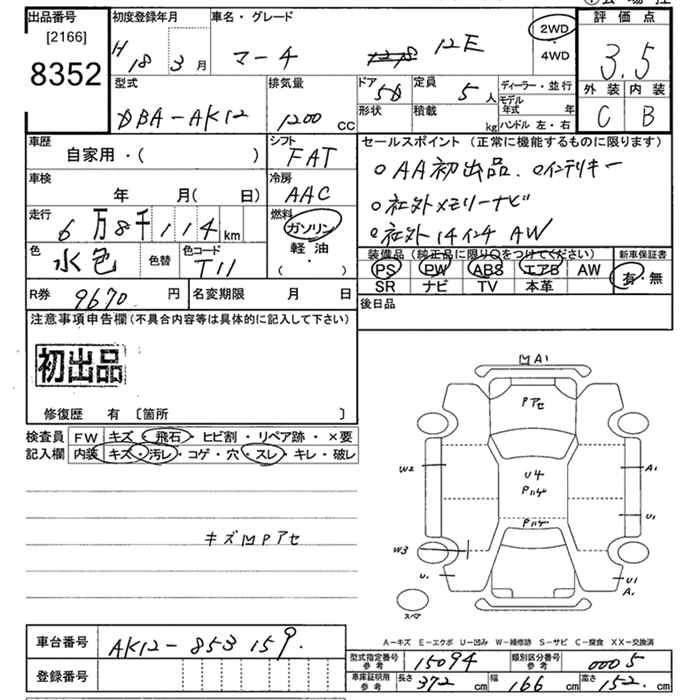 出品番号
[2166]
8352
初度登録年月
H 18 3 月
車名・グレード
マーチ 12E
2WD
・
4WD
評価点
3.5
外装 内装
C B
型式
DBA-AK12
排気量
1200 CC
ドア
5D
形状
定員
5 人
積載
kg
ディーラー・並行
モデル年式 年
ハンドル 左・右
車歴
自家用・( )
シフト
FAT
車検
年 月( 日)
冷房
AAC
走行
6万8千114 km
燃料
ガソリン
軽・油
( ・ )
色
水色
色替
色コード
T11
セールスポイント(正常に機能するものに限ります)
○AA初出品 ○インテリキー
○社外メモリーナビ
○社外14インチAW
装備品(純正品に限り○をつけてください) 新車保証書
PS PW ABS エアB AW 有・無
SR ナビ TV 本革
R券 9670 円 名変期限 月 日
後日品
注意事項申告欄(不具合内容等は具体的に記入して下さい)
初出品
修復歴 有 〔箇所 〕
検査員 FW キズ・飛石・ヒビ割・リペア跡・×要
記入欄 内装 キズ・汚レ・コゲ・穴・スレ・キレ・破レ
キズMPアセ
MA1
Pアセ
W2 U4 A1
Pハゲ
Pハゲ U1
W3
U1
A1
スペア
A-キズ E-エクボ U-凹み W-補修跡 S-サビ C-腐食 XX-交換済
車台番号 AK12-853159
登録番号
型式指定番号 参考 15094 類別区分番号 参考 0005
車庫証明用 参考 長さ 372 cm 幅 166 cm 高さ 152 cm